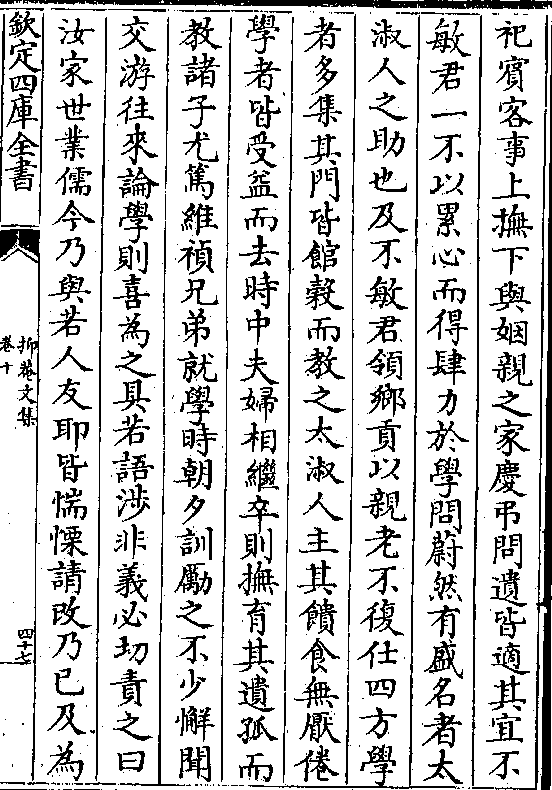 祀賓客事上撫下與姻親之家慶弔問遺皆適其宜不
敏君一不以累心而得肆力於學問蔚然有盛名者太
淑人之助也及不敏君領鄉貢以親老不復仕四方學
者多集其門皆館榖而教之太淑人主其饋食無厭倦
學者皆受益而去時中夫婦相繼卒則撫育其遺孤而
教諸子尤篤維禎兄弟就學時朝夕訓勵之不少懈聞
交游往來論學則喜為之具若語涉非義必切責之曰
汝家世業儒今乃與若人友耶皆惴慄請改乃已及為
欽定四庫全書
抑菴文集
卷十
四十七